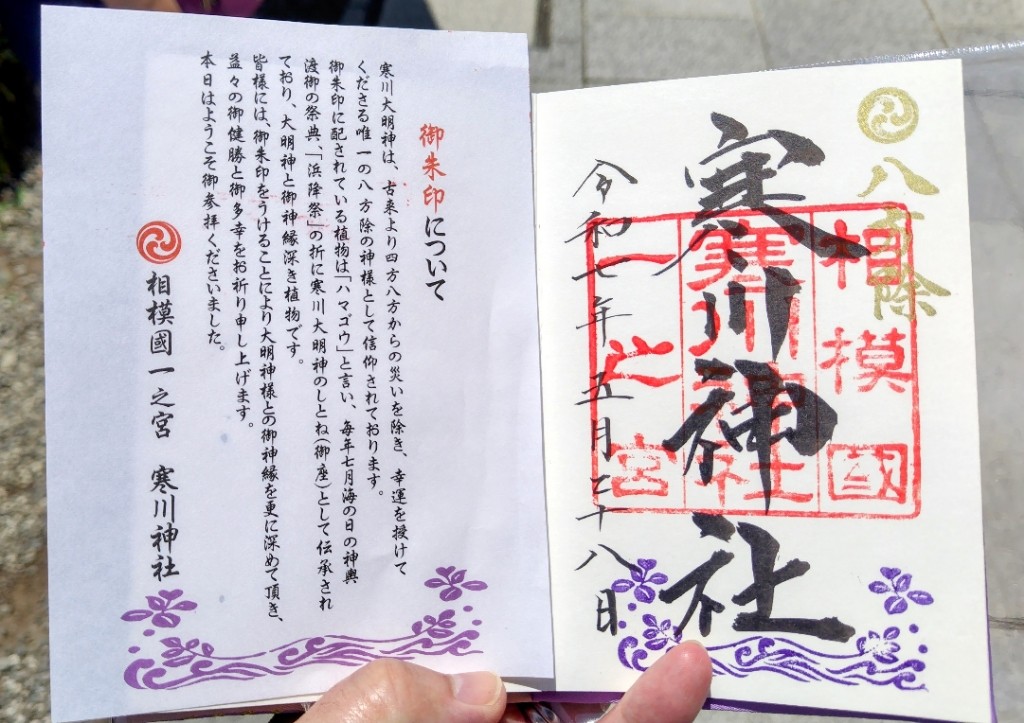 御朱印について
寒川大明神は、古来より四方八方からの災いを除き、幸運を授けて
くださる唯一の八方除の神様として信仰されております。
御朱印に配されている植物は「ハマゴウ」と言い、毎年七月海の日の神輿
渡御の祭典、「浜降祭」の折に寒川大明神のしとね(御座)として伝承され
ており、大明神と御神縁深き植物です。
皆様には、御朱印をうけることにより大明神様との御神縁を更に深めて頂き、
益々の御健勝と御多幸をお祈り申し上げます。
本日はようこそ御参拝くださいました。
相模國一之宮 寒川神社
八方除
相模國
寒川神社
一之宮
寒川神社
令和七年五月二十八日